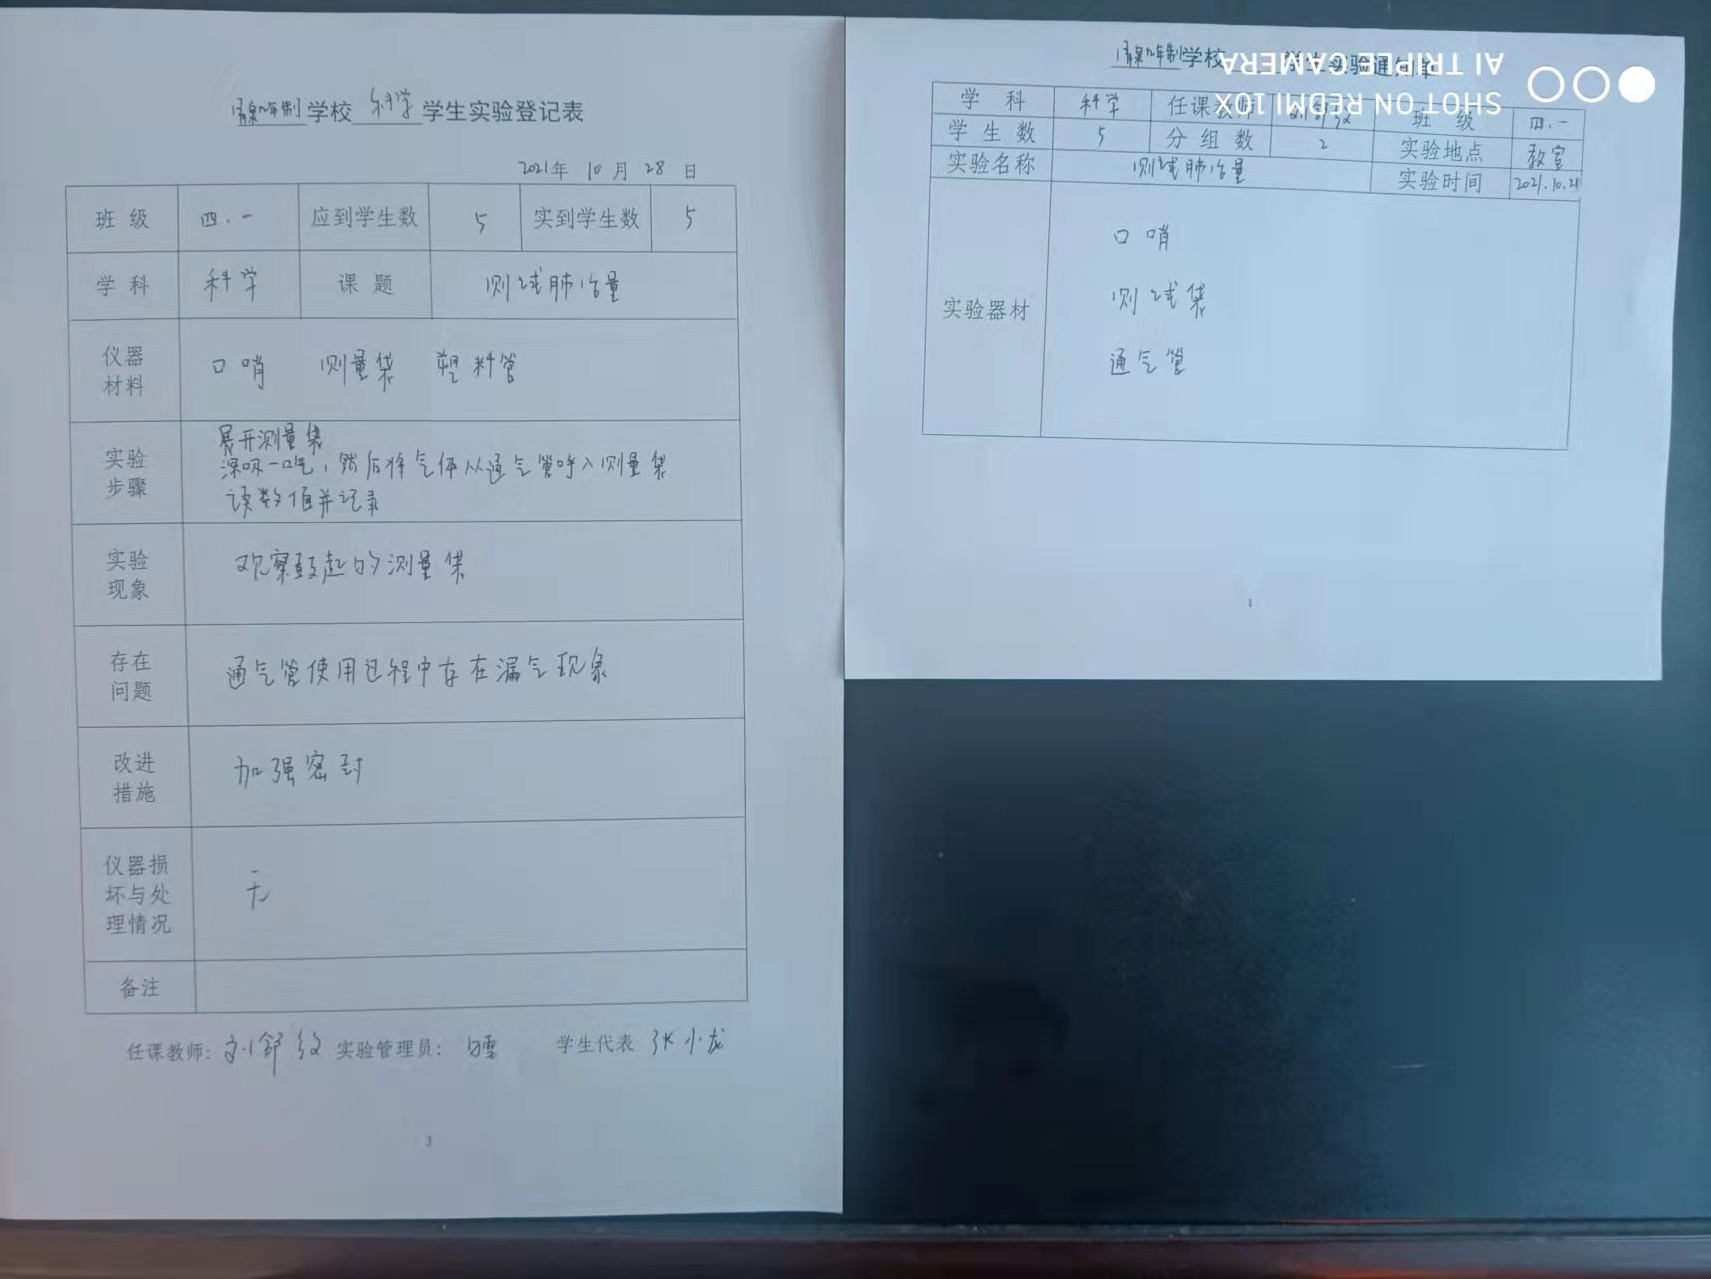 清泉九年制学校 科学 学生实验登记表
2021年 10 月 28 日
班级 四.一 应到学生数 5 实到学生数 5
学科 科学 课题 测试肺活量
仪器材料 口哨 测量袋 塑料管
实验步骤
展开测量袋
深吸一口气，然后将气体从通气管呼入测量袋
读数值并记录
实验现象 观察鼓起的测量袋
存在问题 通气管使用过程中存在漏气现象
改进措施 加强密封
仪器损坏与处理情况 无
备注
任课教师：刘舒 实验管理员： 学生代表 张小龙
3
清泉九年制学校 学生实验通知单
学科 科学 任课教师 班级 四.一
学生数 5 分组数 2 实验地点 教室
实验名称 测试肺活量 实验时间 2021.10.28
实验器材
口哨
测试袋
通气管
1
SHOT ON REDMI 10X
AI TRIPLE CAMERA